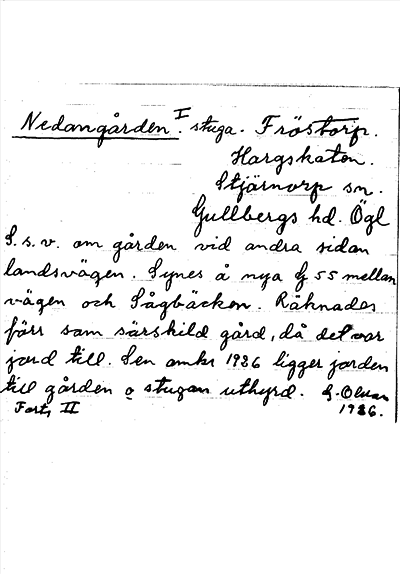 Nedangården. I stuga. Fröstorp.
Hargskaten.
Stjärnorp sn.
Gullbergs hd. Ögl
S.s.v. om gården vid andra sidan
landsvägen. Synes å nya G 55 mellan
vägen och Sågbäcken. Räknades
förr som särskild gård, då det var
jord till. Sen omkr 1926 ligger jorden
till gården o stugan uthyrd. G. Olsson
Forts, II 1926.